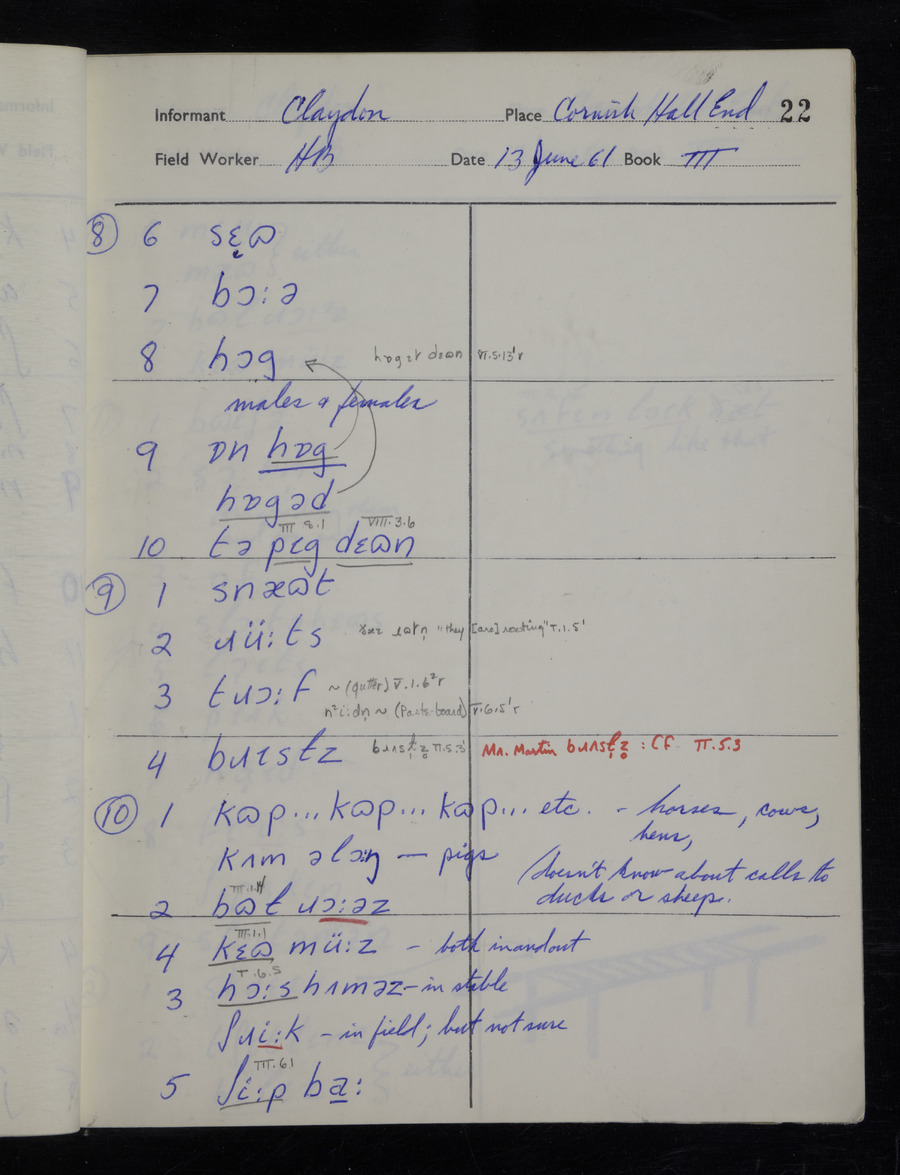 Informant Claydon Place Cornish Hall End 22
Field Worker HB Date 13 June 61 Book III
⑧ 6 sɛ̞ɷ
7 bɔːə
8 hɔg hɒgər dɛɷn VI.5.13'r
males & females
9 ɒn hɒg
hɒgəd
III 8.1 VIII.3.6
10 tə pɪg dɛɷn
⑨ 1 snæɷt
2 ɹüːts "they [are] rooting" V.1.5'
3 tɹɔːf ~ (gutter) V.1.6²r
n²iːdn̩ ~ (Paste-board) V.6.5'r
4 bɹɪstz bɹʌstz̥ II.5.3' Mr. Martin bɹʌstz̥ : Cf II.5.3
⑩ 1 kɷp... kɷp... kɷp... etc. - horses, cows,
hens,
kʌm əlɔːŋ — pigs
Doesn't know about calls to
ducks or sheep.
2 bɷt ɹɔːəz
III.1.1
4 kɛɷ müːz - both in and out
I.6.5
3 hɔːs hʌməz - in stable
ʃɹiːk - in field; but not sure
III.6.1
5 ʃiːp baː